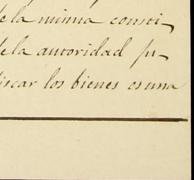 de la misma consti-
de la autoridad pu-
iscar los bienes o una